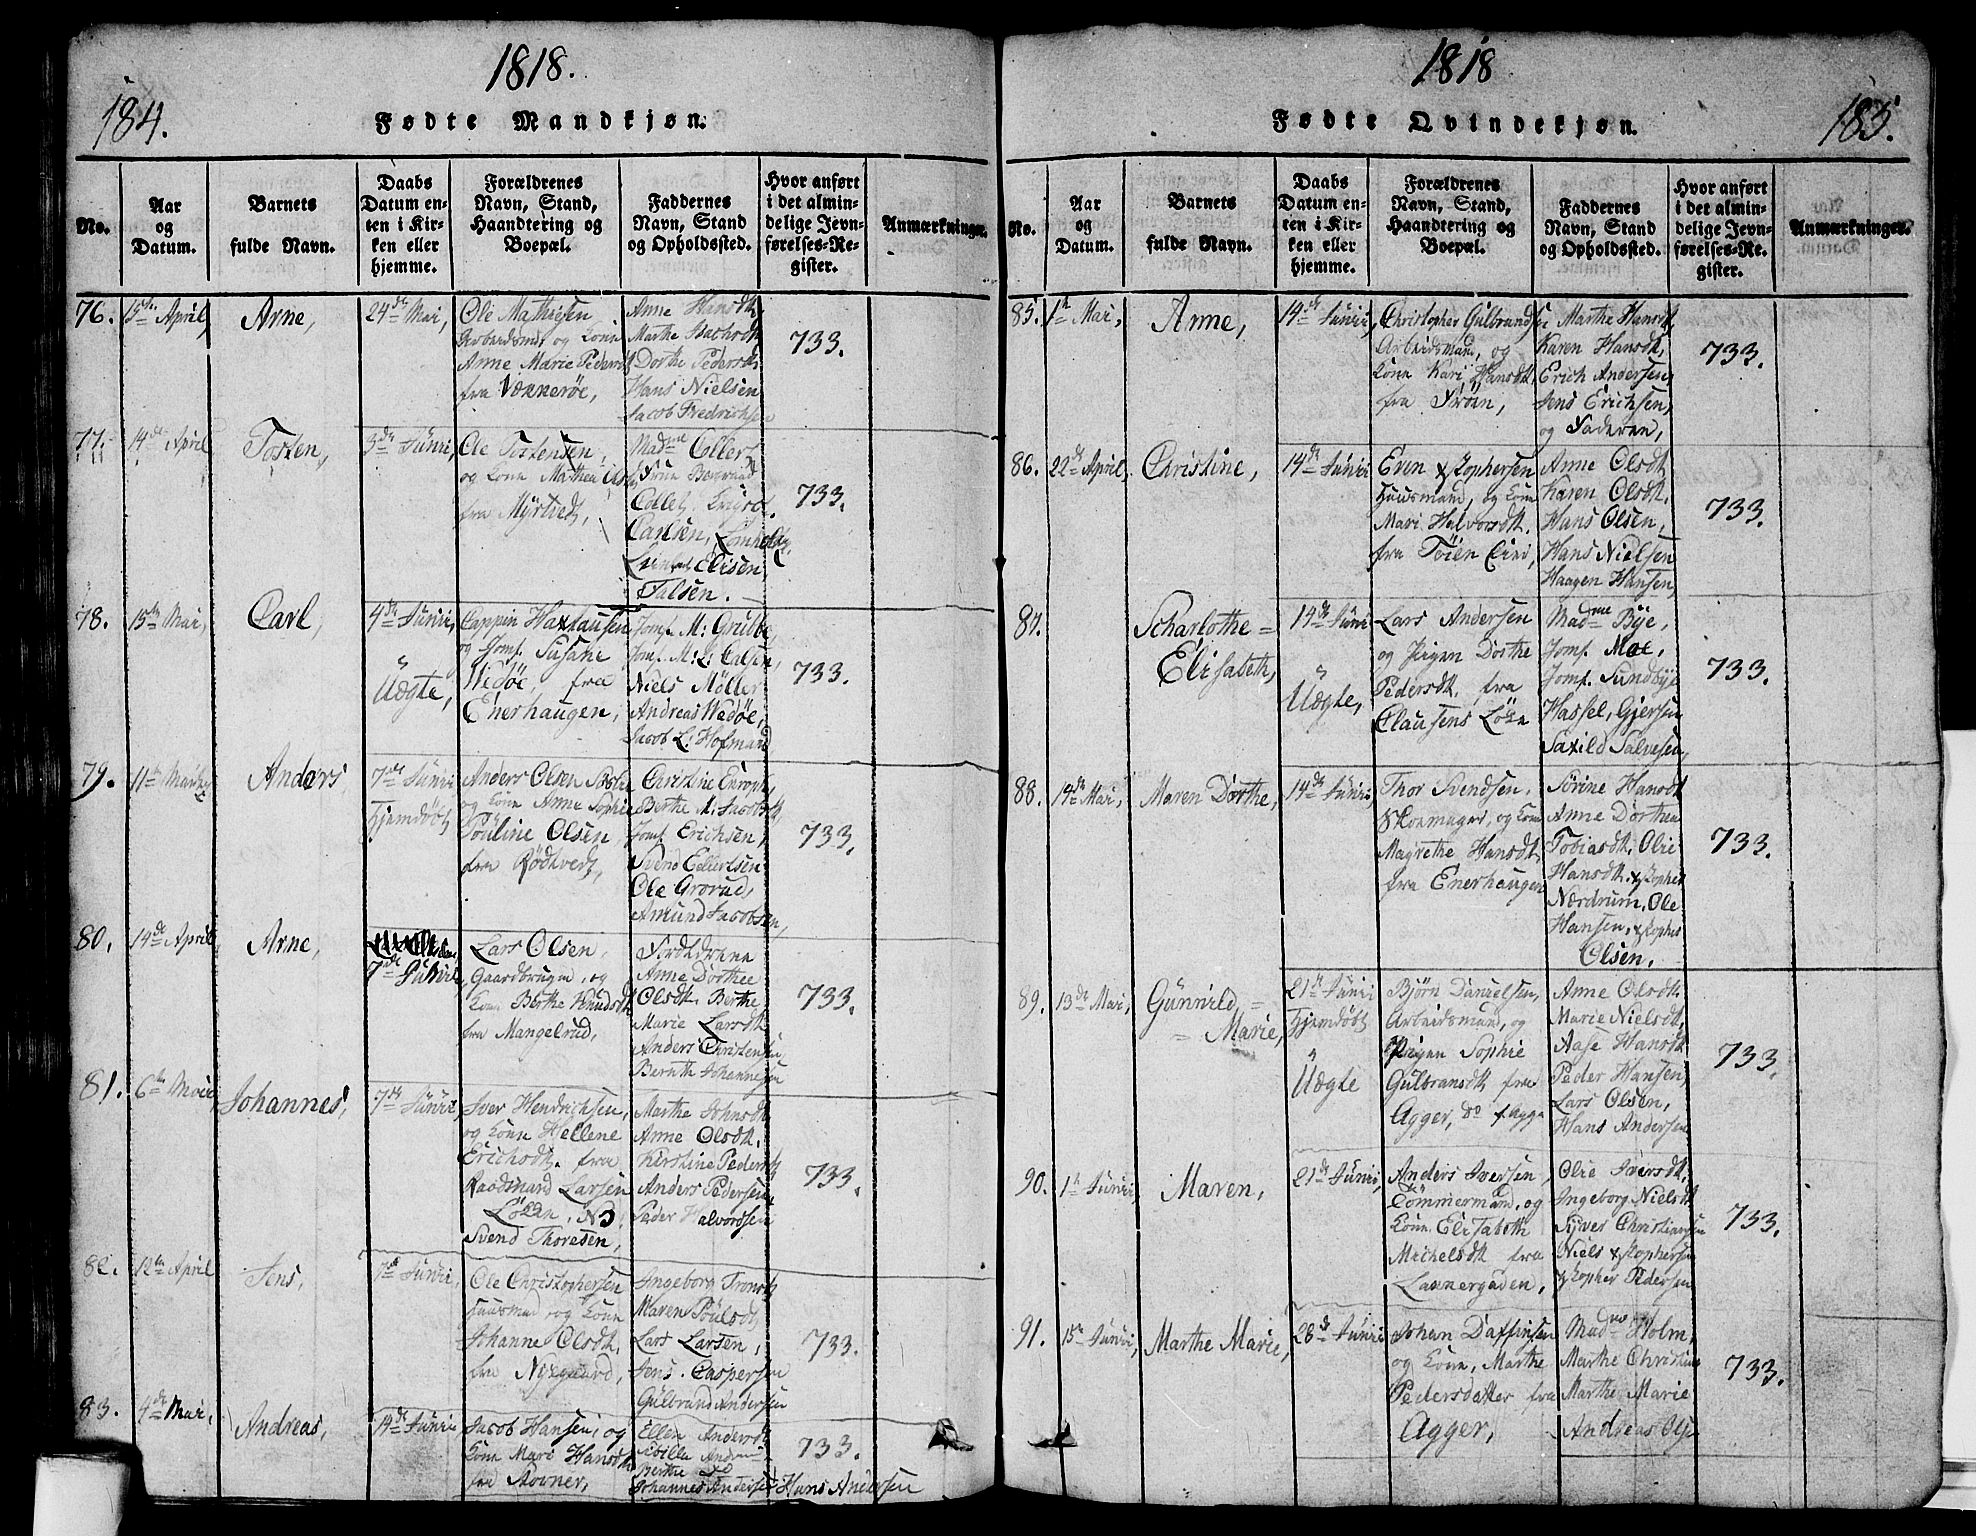 184.
1818.
Fødte Mandkjøn.
No.
Aar
og
Datum.
Barnets
fulde Navn.
Daabs
Datum en-
ten i Kir-
ken eller
hjemme.
Forældrenes
Navn, Stand,
Haandtering og
Boepæl.
Faddernes
Navn, Stand
og Opholdssted.
Hvor anført
i det almin-
delige Jevn-
førelses-Re-
gister.
Anmærkninger.
76.
15de April,
Arne,
24de Mai,
Ole Mathiesen
Arbeidsmd, og Kone
Anne Marie Pedersd
fra Vækkerøe,
Anne Hansdt,
Marthe
Dorthe Pedersdt
Hans Nielsen
Jacob Fredrichsen
733.
77.
14de April
Tosten,
3de Junii,
Ole Tostensen,
og Kone Mathea
fra Myrtvedt,
Madme Collert
Carlsen,
Elisen,
Falsen.
733.
78.
15de Mai,
Carl,
4de Junii,
Uægte,
Cappin Haxtausen
og Jomf. Susane
Wedøe, fra
Enerhaugen,
Jomf. M: Grubbe
Jomf. M: L: Calsen,
Niels Møller
Andreas Wedøe,
Jacob L: Hofmand
733.
79.
11te
Anders
7de Junii
Hjemdøbt
Anders Olsen
og Kone Anne Sophie
Pouline Olsen
fra Rødtvedt,
Christine
Berthe M: Jacobsdt,
Jomf. Erichsen,
Svend Edertsen
Ole Grorud,
Amund Jacobsen,
733.
80.
14de April
Arne,
7de Junii
Lars Olsen,
Gaardbruger, og
Kone Berthe Knudsdt
fra Mangelrud,
Forældrene
Anne Dorthee
Olsdt. Berthe
Marie Larsdt
Anders Christensen
Bernth Johannesen
733.
81.
6te Mai,
Johannes,
7de Junii,
Iver Hendrichsen,
og Kone Hellene
Erichsdt. fra
Raadmand Larsen
Løkken,
Svend Thoresen,
Marthe Johnsdt
Anne Olsdt.
Kirstine Pedersdt
Anders Pedersen
Peder Halvorsen
733.
82.
12te April
Jens,
7de Junii,
Ole Christophersen
Huusmd og Kone
Johanne Olsdt.
fra Nygaard,
Ingeborg Tronsdt
Maren Poulsdt
Lars Larsen,
Jens Caspersen
Gulbrand Andersen
733.
83.
4de Mai,
Andreas,
14de Junii
Jacob Hansen, og
Kone Mari Hansdt
fra Stovner,
Ellen Andersdt
Berthe do
Johannes Andersen Hans Andersen
733.
1818
185.
Fødte Qvindekjøn.
No.
Aar
og
Datum.
Barnets
fulde Navn.
Daabs
Datum en-
ten i Kir-
ken eller
hjemme.
Forældrenes
Navn, Stand,
Haandtering og
Boepæl.
Faddernes
Navn, Stand
og Opholdssted.
Hvor anført
i det almin-
delige Jevn-
førelses-Re-
gister.
Anmærkninger.
85.
1te Mai,
Anne,
14de Junii,
Christopher Gulbrandsen
Arbeidsmand, og
Kone Kari Hansdt,
fra Frøen,
Marthe Hansdt,
Karen Hansdt,
Erich Andersen,
Jens Erichsen,
og Faderen,
733.
86.
22de April,
Christine,
14de Junii
Even Xstophersen
Huusmand, og Kone
Mari Halvorsdt.
fra Tøien Eie,
Anne Olsdt
Karen Olsdt.
Hans Olsen,
Hans Nielsen
Haagen Hansen,
733.
87.
Scharlothe=
Elisabeth,
14de Junii
Uægte,
Lars Andersen
og Pigen Dorthe
Pedersdt. fra
Clausens Løkke
Madme Bye,
Jomf. Moe,
Jomf. Sundbye
Hassel, Gjersen
Saxild Salvesen,
733.
88.
14de Mai,
Maren Dorthe,
14de Junii
Thor Svendsen,
Skoemager, og Kone
Magrethe Hansdt
fra Enerhaugen
Sørine Hansdt
Anne Dorthea
Tobiasdt. Olie
Hansdt. Xstopher
Nærdrum, Ole
Hansen, Xstopher
Olsen.
733.
89.
13de Mai,
Gunnild=
=Marie,
21te Junii
Hjemdøbt
Uægte
Bjørn Danielsen,
Arbeidsmand, og
Pigen Sophie
Gulbransdt fra
Agger, do f. Agger
Anne Olsdt
Marie Nielsdt,
Aase Hansdt
Peder Hansen,
Lars Olsen,
Hans Andersen
733.
90.
1te Junii,
Maren,
21de Junii,
Anders Iversen,
Tømmermand, og
Kone Elisabeth
Michelsdt fra
Lakkergaden,
Olie Iversdt.
Ingeborg Nielsdt
Syver Christiansen
Niels Xstophersen
Xstopher Pedersen
733.
91.
15de Junii,
Marthe Marie,
28de Junii
Johan Daffinsen
og Kone, Marthe
Pedersdatter fra
Agger,
Madme Holm,
Marthe Christine
Marthe Marie
Andreas Olsen
733.